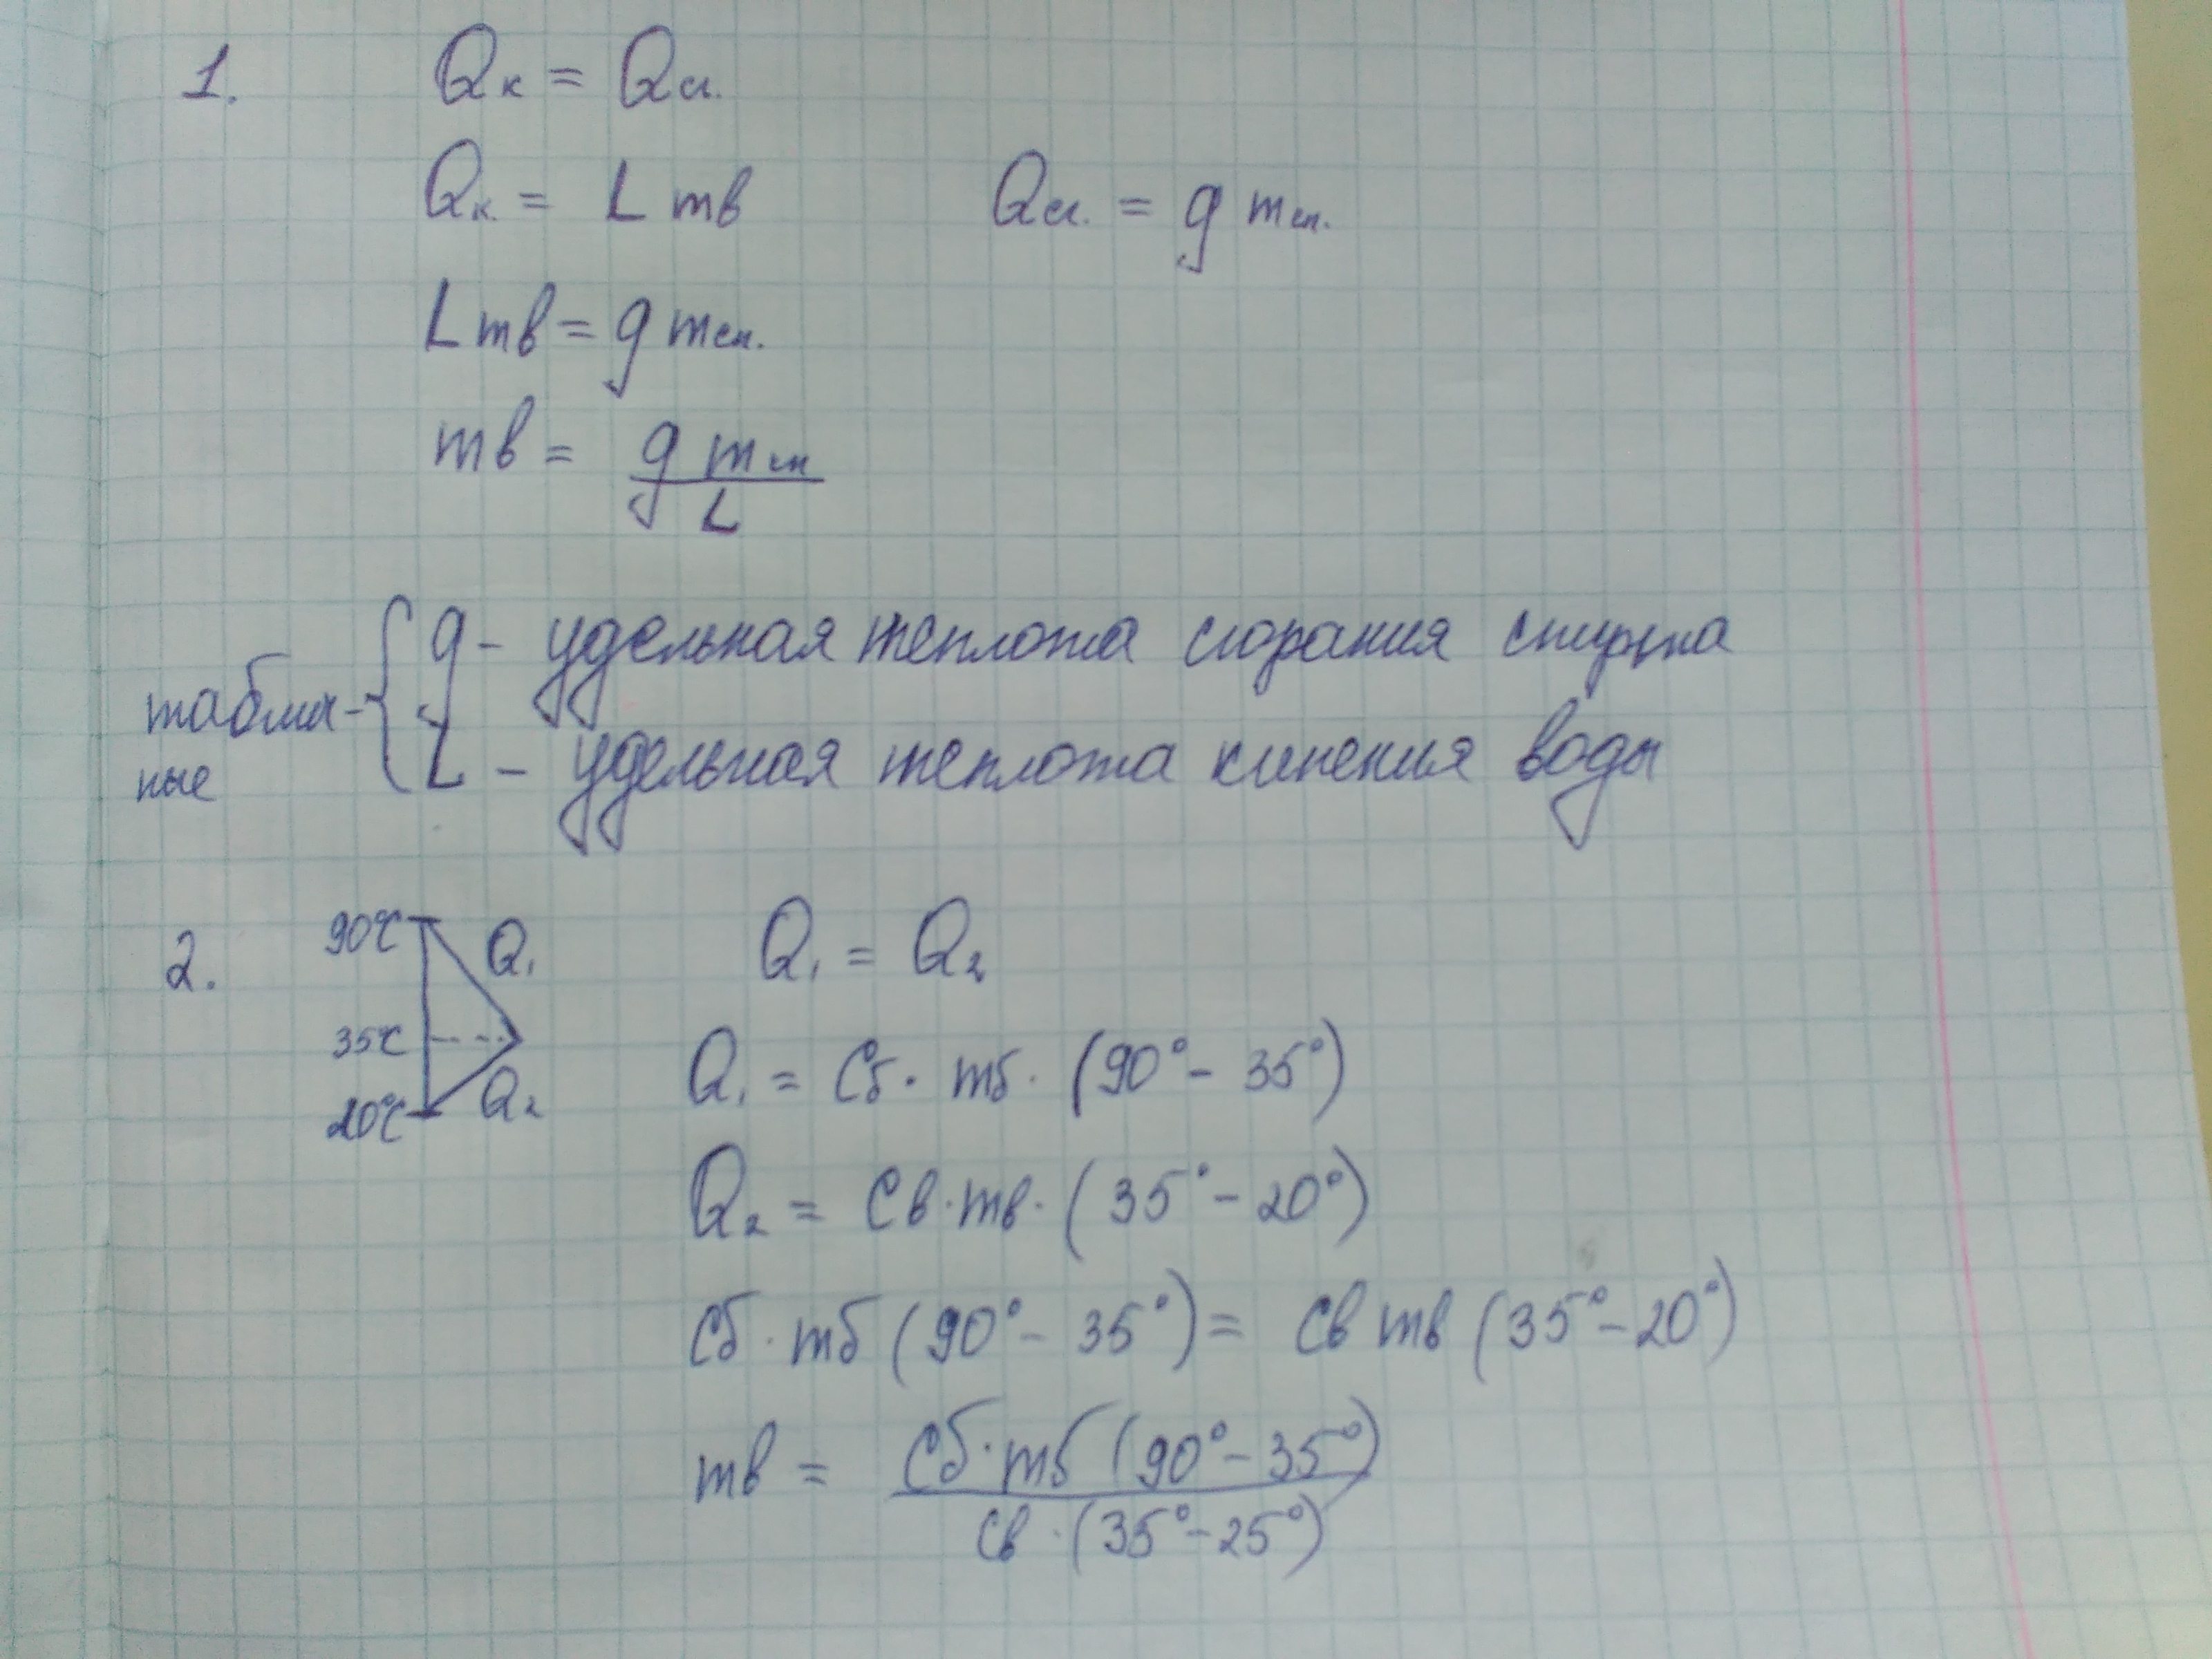 1. Qк = Qсг.
Qк. = L mв Qсг. = q mсп.
L mв = q mсп.
mв = q mсп / L
таблич- { q - удельная теплота сгорания спирта
ные L - удельная теплота кипения воды
2. 90°C Q₁ Q₁ = Q₂
35°C
20°C Q₂
Q₁ = Cб · mб · (90° - 35°)
Q₂ = Cв · mв · (35° - 20°)
Cб · mб (90° - 35°) = Cв mв (35° - 20°)
mв = Cб · mб (90° - 35°) / Cв · (35° - 25°)